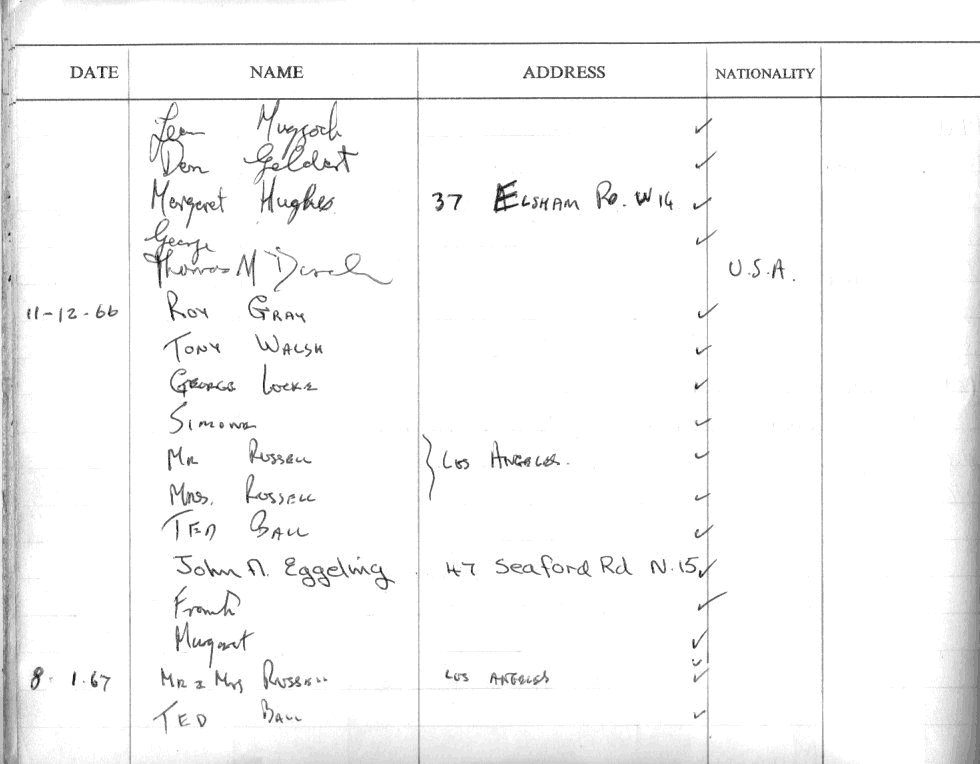 DATE NAME ADDRESS NATIONALITY
Jean Muggoch
Don Geldart
Margaret Hughes 37 ELSHAM RD. W14
George
Thomas M U.S.A.
11-12-66 ROY GRAY
TONY WALSH
GEORGE LOCKE
SIMONE
MR RUSSELL LOS ANGELES.
MRS. RUSSELL
TED BALL
John A. Eggeling 47 Seaford Rd N.15
Frank
Margaret
8. 1.67 MR & MRS RUSSELL LOS ANGELES
TED BALL